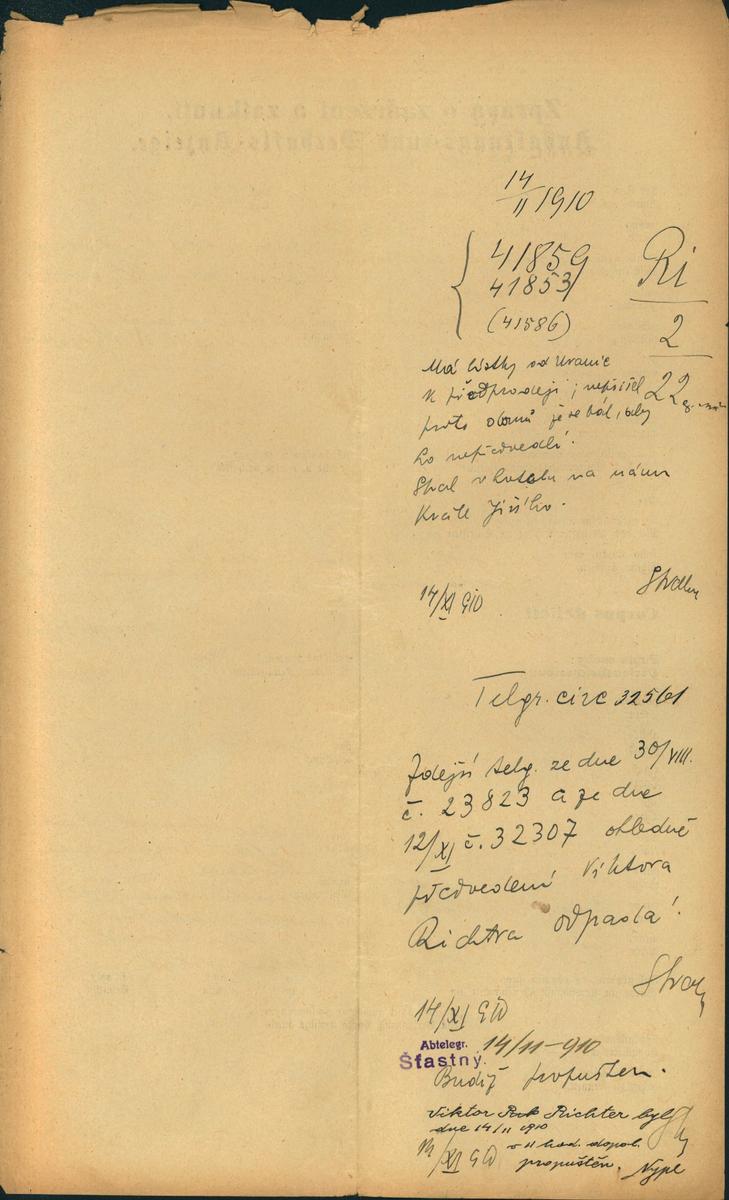 14/11 1910
41859
41853
(41586)
Ri
2
22
Má lístky od Uranie
k předprodeji; nepřišel
proto domů že se bál, aby
ho nepředvedli.
Spal v hotelu na nám
Krále Jiřího.
14/XI 910
Telgr. circ 32561
Zdejší telg. ze dne 30/VIII.
č. 23823 a ze dne
12/XI č. 32307 ohledně
předvedení Viktora
Richtra odpadá!
14/XI 910
Abtelegr. 14/11-910
Šťastný.
Budiž propuštěn.
Viktor Richter byl
dne 14/11 1910
v 11 hod. dopol.
14/XI 910 propuštěn. Nypl